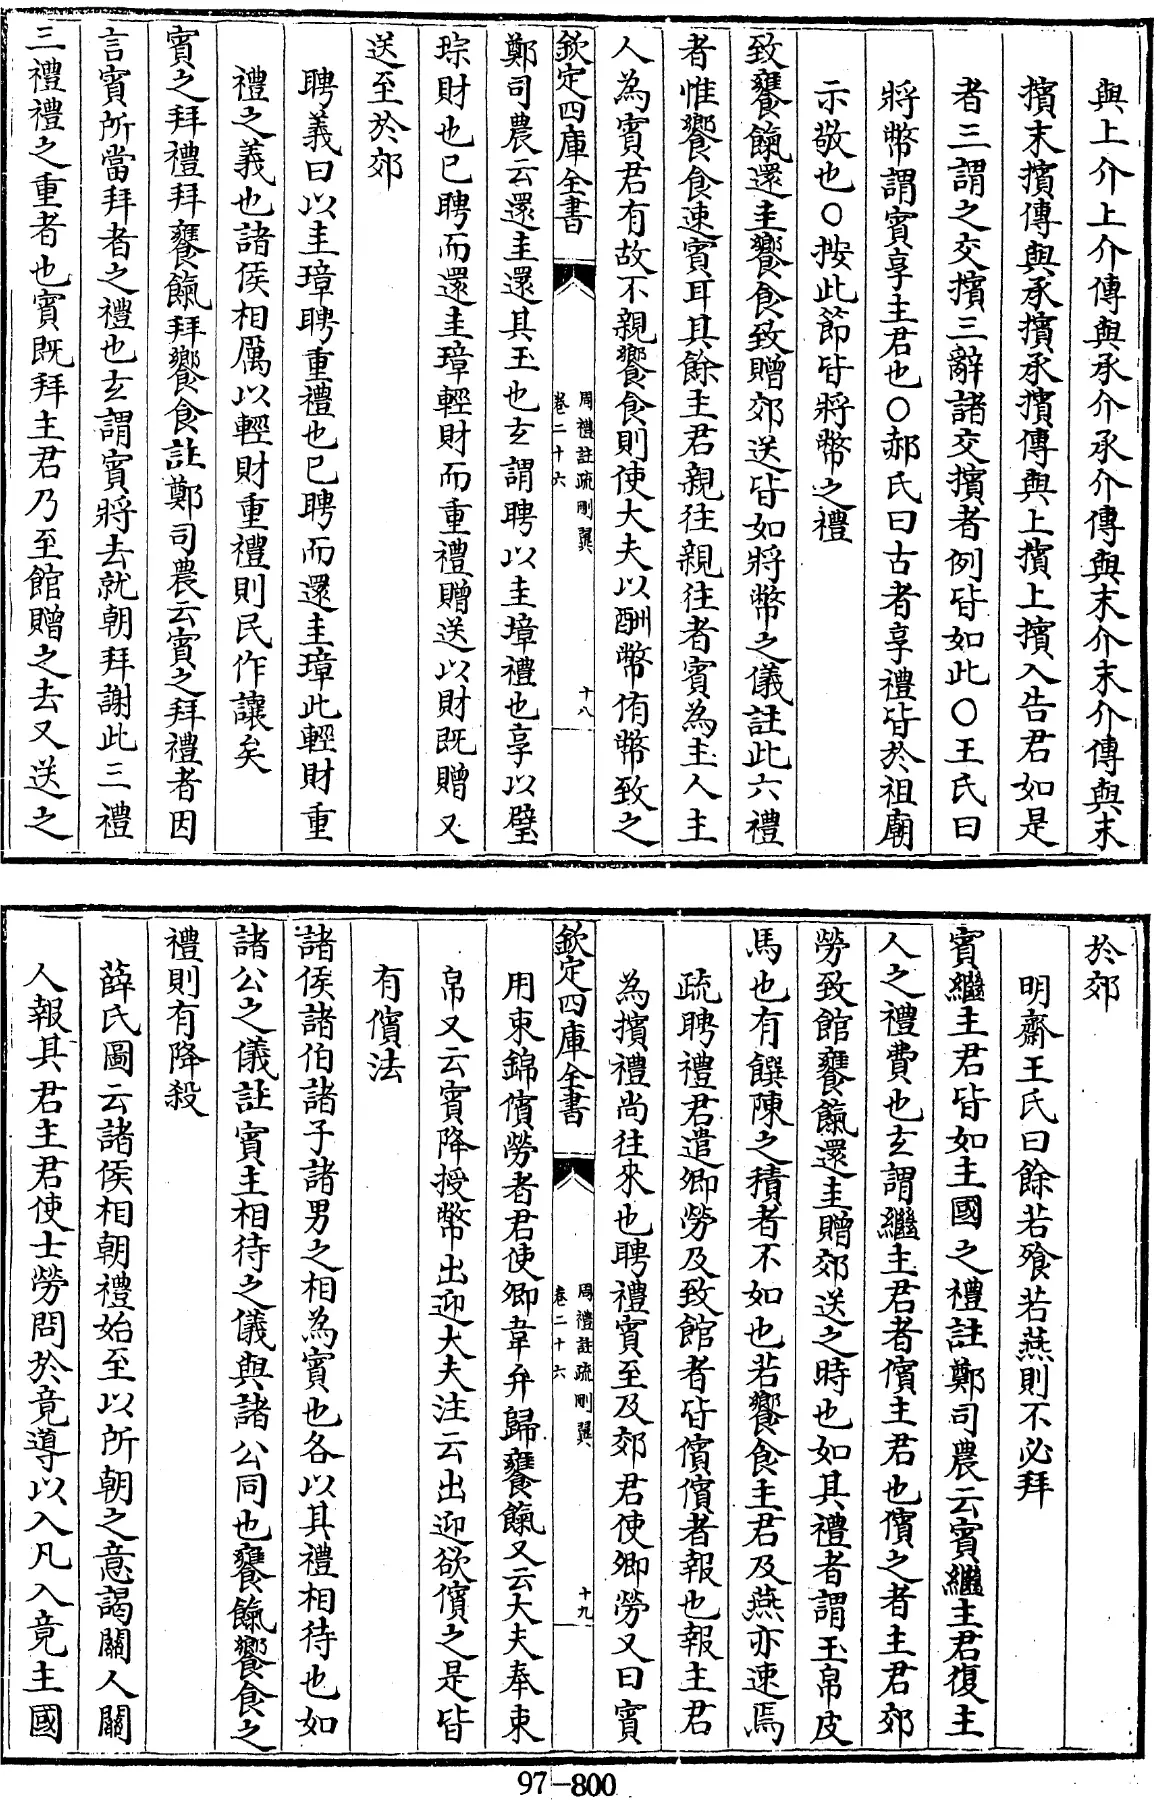 與上介上介傳與承介承介傳與末介末介傳與末
擯末擯傳與承擯承擯傳與上擯上擯入告君如是
者三謂之交擯三辭諸交擯者例皆如此〇王氏曰
將幣謂賓享主君也〇郝氏曰古者享禮皆於祖廟
示敬也〇按此節皆將幣之禮
致饔餼還圭饗食致贈郊送皆如將幣之儀註此六禮
者惟饗食速賓耳其餘主君親往親往者賓為主人主
人為賓君有故不親饗食則使大夫以酬幣侑幣致之
欽定四庫全書
周禮註疏刪翼
卷二十六
十八
鄭司農云還圭還其玉也玄謂聘以圭璋禮也享以璧
琮財也已聘而還圭璋輕財而重禮贈送以財既贈又
送至於郊
聘義曰以圭璋聘重禮也已聘而還圭璋此輕財重
禮之義也諸侯相厲以輕財重禮則民作讓矣
賓之拜禮拜饔餼拜饗食註鄭司農云賓之拜禮者因
言賓所當拜者之禮也玄謂賓將去就朝拜謝此三禮
三禮禮之重者也賓既拜主君乃至館贈之去又送之
於郊
明齋王氏曰餘若飧若燕則不必拜
賓繼主君皆如主國之禮註鄭司農云賓繼主君復主
人之禮費也玄謂繼主君者儐主君也儐之者主君郊
勞致館饔餼還圭贈郊送之時也如其禮者謂玉帛皮
馬也有饌陳之積者不如也若饗食主君及燕亦速焉
疏聘禮君遣卿勞及致館者皆儐儐者報也報主君
為擯禮尚往來也聘禮賓至及郊君使卿勞又曰賓
欽定四庫全書
周禮註疏刪翼
卷二十六
十九
用束錦儐勞者君使卿韋弁歸饔餼又云大夫奉束
帛又云賓降授幣出迎大夫注云出迎欲儐之是皆
有儐法
諸侯諸伯諸子諸男之相為賓也各以其禮相待也如
諸公之儀註賓主相待之儀與諸公同也饔餼饗食之
禮則有降殺
薛氏圖云諸侯相朝禮始至以所朝之意謁關人關
人報其君主君使士勞問於竟導以入凡入竟主國
97-800